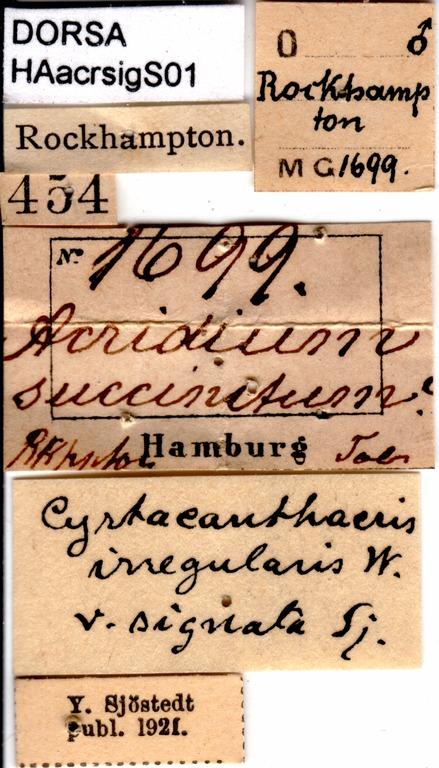 DORSA
HAacrsigS01
O ♂
Rockhamp
ton
M G 1699.
Rockhampton.
454
No 1699.
Acridium
succinctum.
Hamburg
Cyrtacanthacris
irregularis W.
v. signata Sj.
Y. Sjöstedt
publ. 1921.